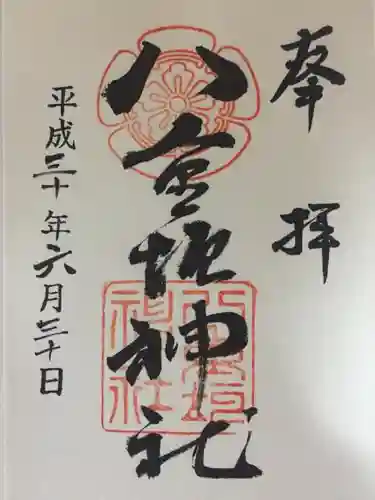 奉拝
八重垣神社
平成三十年六月三十日